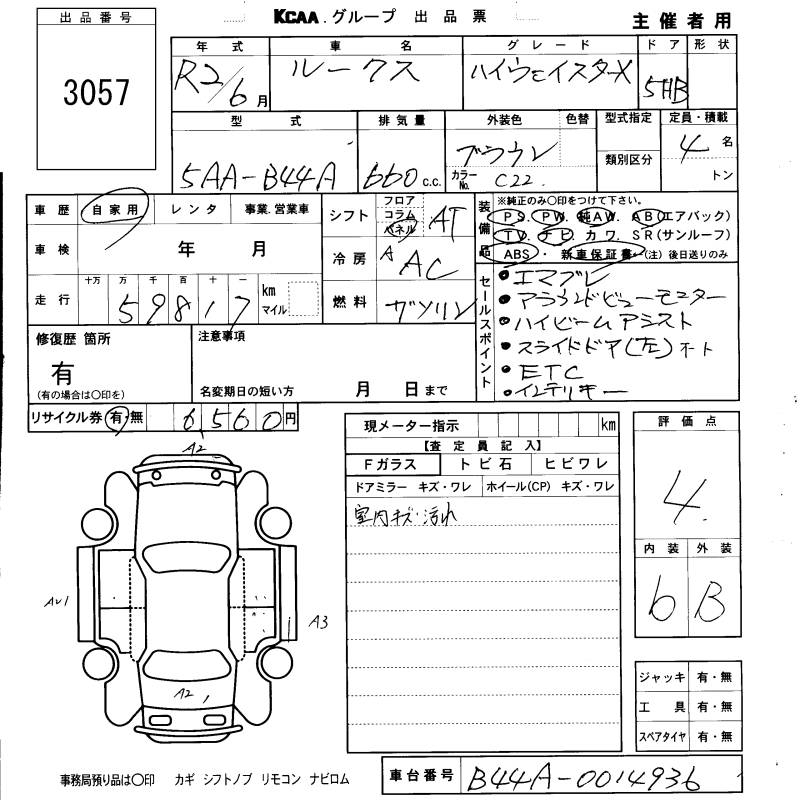 出品番号
3057
KCAA.グループ 出品票
主催者用
年式 車名 グレード ドア 形状
R2/6月 ルークス ハイウェイスターX 5HB
型式 排気量 外装色 色替 型式指定 定員・積載
類別区分
5AA-B44A 660c.c. ブラウン 4名
カラーNo. C22 トン
車歴 自家用 レンタ 事業.営業車
シフト フロア コラム パネル AT
装備品 ※純正のみ○印をつけて下さい。
PS. PW. 純AW. AB(エアバック)
TV. ナビ カワ. SR(サンルーフ)
ABS・新車保証書(注)後日送りのみ
車検 年 月
冷房 A AC
走行 十万 万 千 百 十 一
59817 km マイル
燃料 ガソリン
セールスポイント
・エマブレ
・アラウンドビューモニター
・ハイビームアシスト
・スライドドア(左)オート
・ETC
・インテリキー
修復歴 箇所
有
(有の場合は○印を)
注意事項
名変期日の短い方 月 日まで
リサイクル券 有・無 6,560円
現メーター指示 km
【査定員記入】
Fガラス トビ石 ヒビワレ
ドアミラー キズ・ワレ ホイール(CP) キズ・ワレ
室内キズ・汚れ
評価点
4.
内装 外装
6 B
A2
AU1
A3
A2
ジャッキ 有・無
工具 有・無
スペアタイヤ 有・無
事務局預り品は○印 カギ シフトノブ リモコン ナビロム
車台番号 B44A-0014936